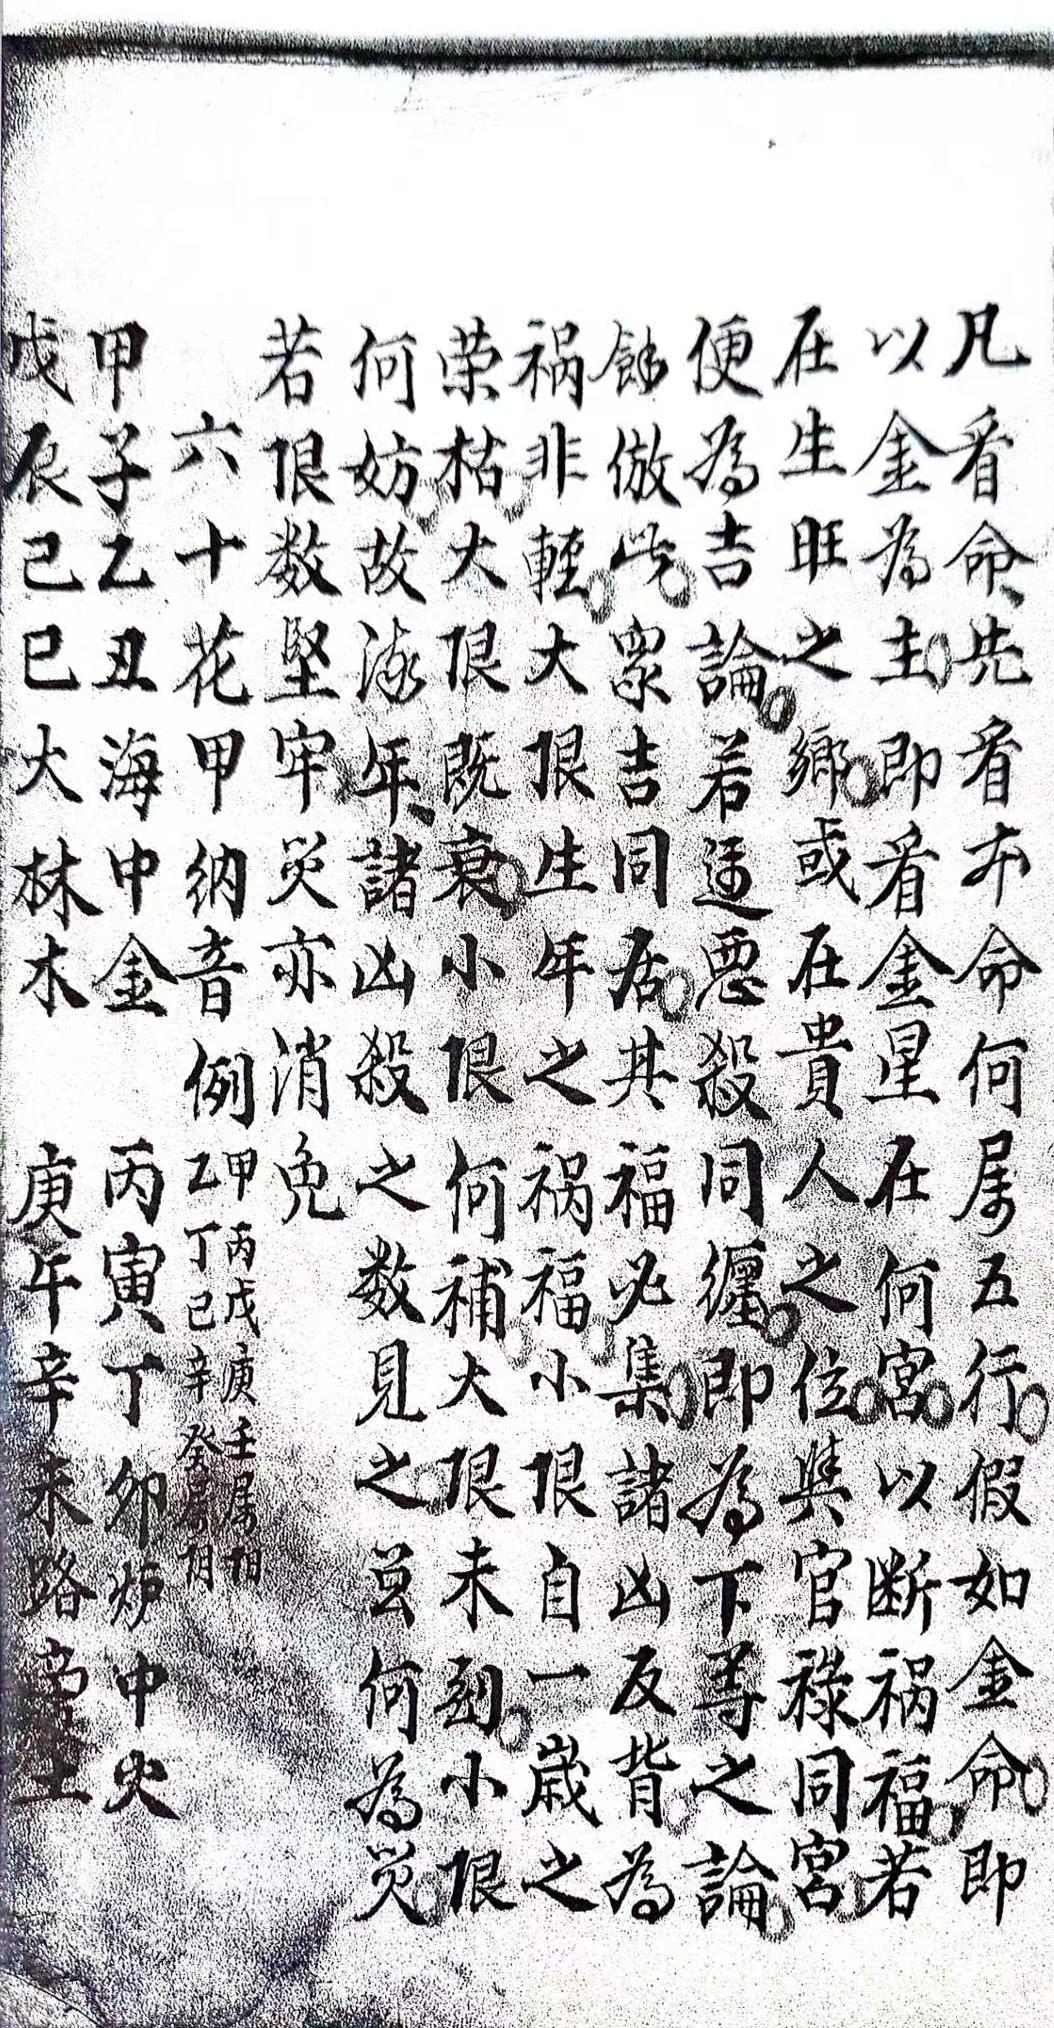 凡看命先看本命何属五行假如金命即
以金為主即看金星在何宮以断祸福若
在生旺之鄉或在貴人之位與官祿同宮
便為吉論若逢惡殺同纏即為下等之論
餘倣此衆吉同居其福必集諸凶反背為
祸非輕大限生年之祸福小限自一歲之
荣枯大限既衰小限何補大限未到小限
何妨故流年諸凶殺之数見之曾何為災
若限数堅牢災亦消免
六十花甲納音例
甲丙戊庚壬属相
乙丁己辛癸属
甲子乙丑海中金 丙寅丁卯炉中火
戊辰己巳大林木 庚午辛未路旁土